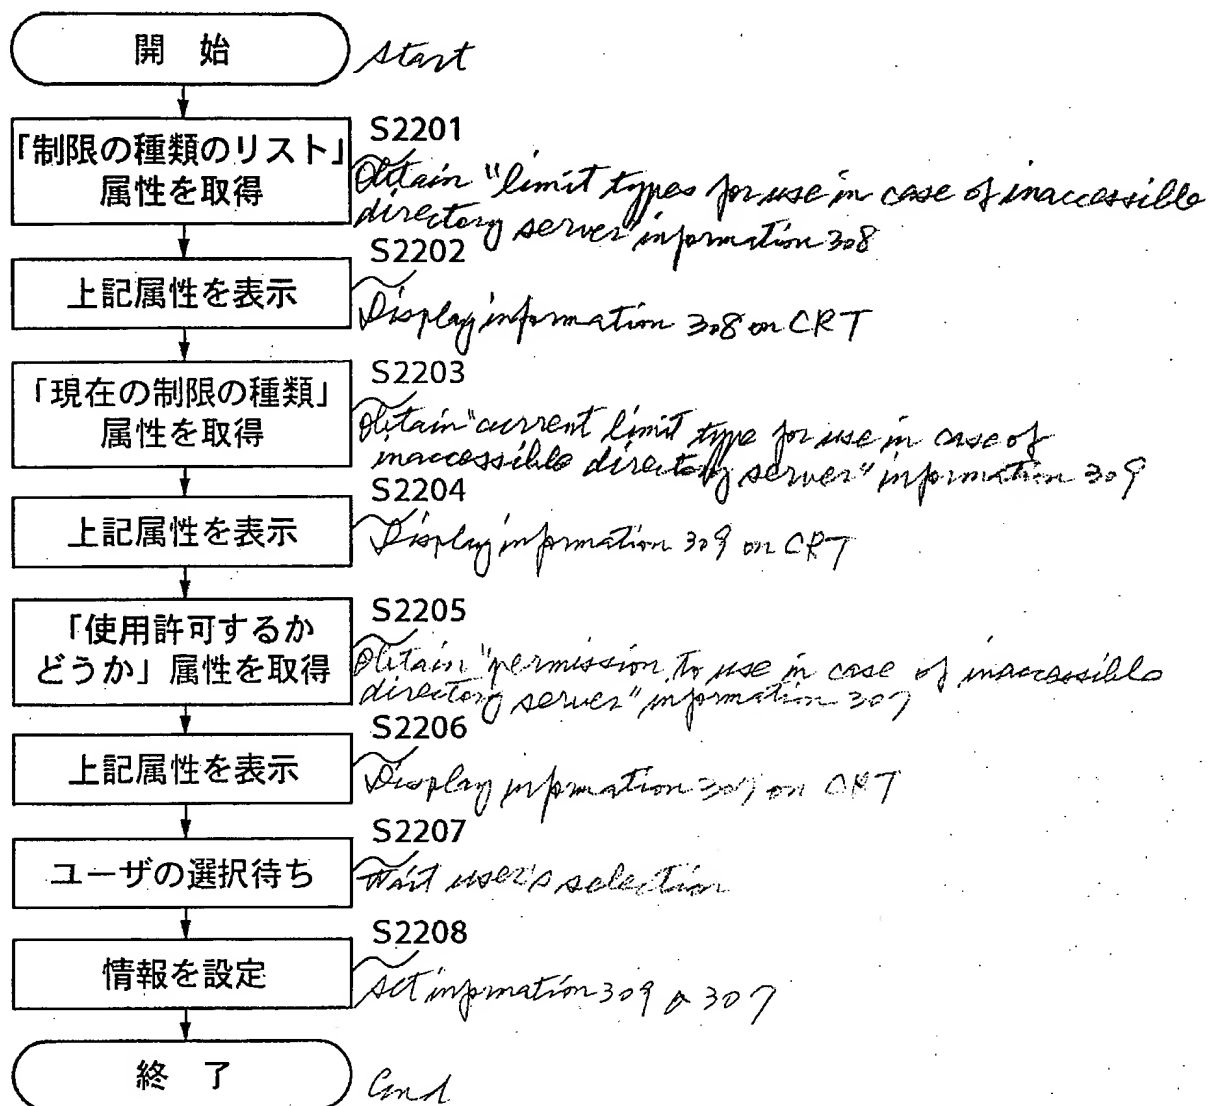 開 始
Start
S2201
「制限の種類のリスト」
属性を取得
Obtain "limit types for use in case of inaccessible
directory server" information 308
S2202
上記属性を表示
Display information 308 on CRT
S2203
「現在の制限の種類」
属性を取得
Obtain "current limit type for use in case of
inaccessible directory server" information 309
S2204
上記属性を表示
Display information 309 on CRT
S2205
「使用許可するか
どうか」属性を取得
Obtain "permission to use in case of inaccessible
directory server" information 307
S2206
上記属性を表示
Display information 307 on CRT
S2207
ユーザの選択待ち
Wait user's selection
S2208
情報を設定
Set information 309 & 307
終 了
End